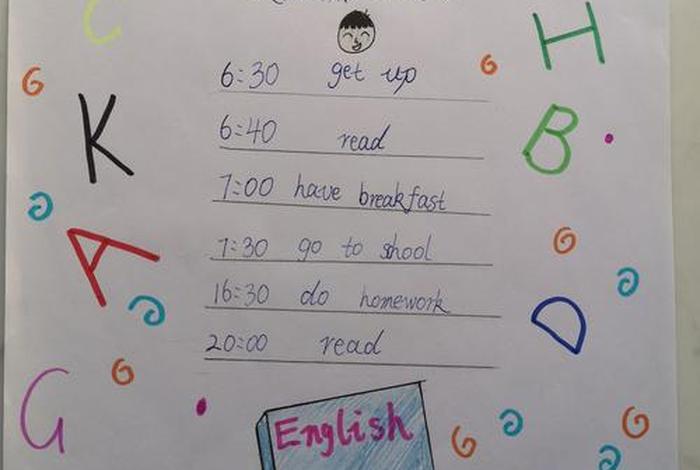 C
H
6:30 get up
K
6:40 read
B
7:00 have breakfast
A
7:30 go to shool
16:30 do homework
D
20:00 read
G
English